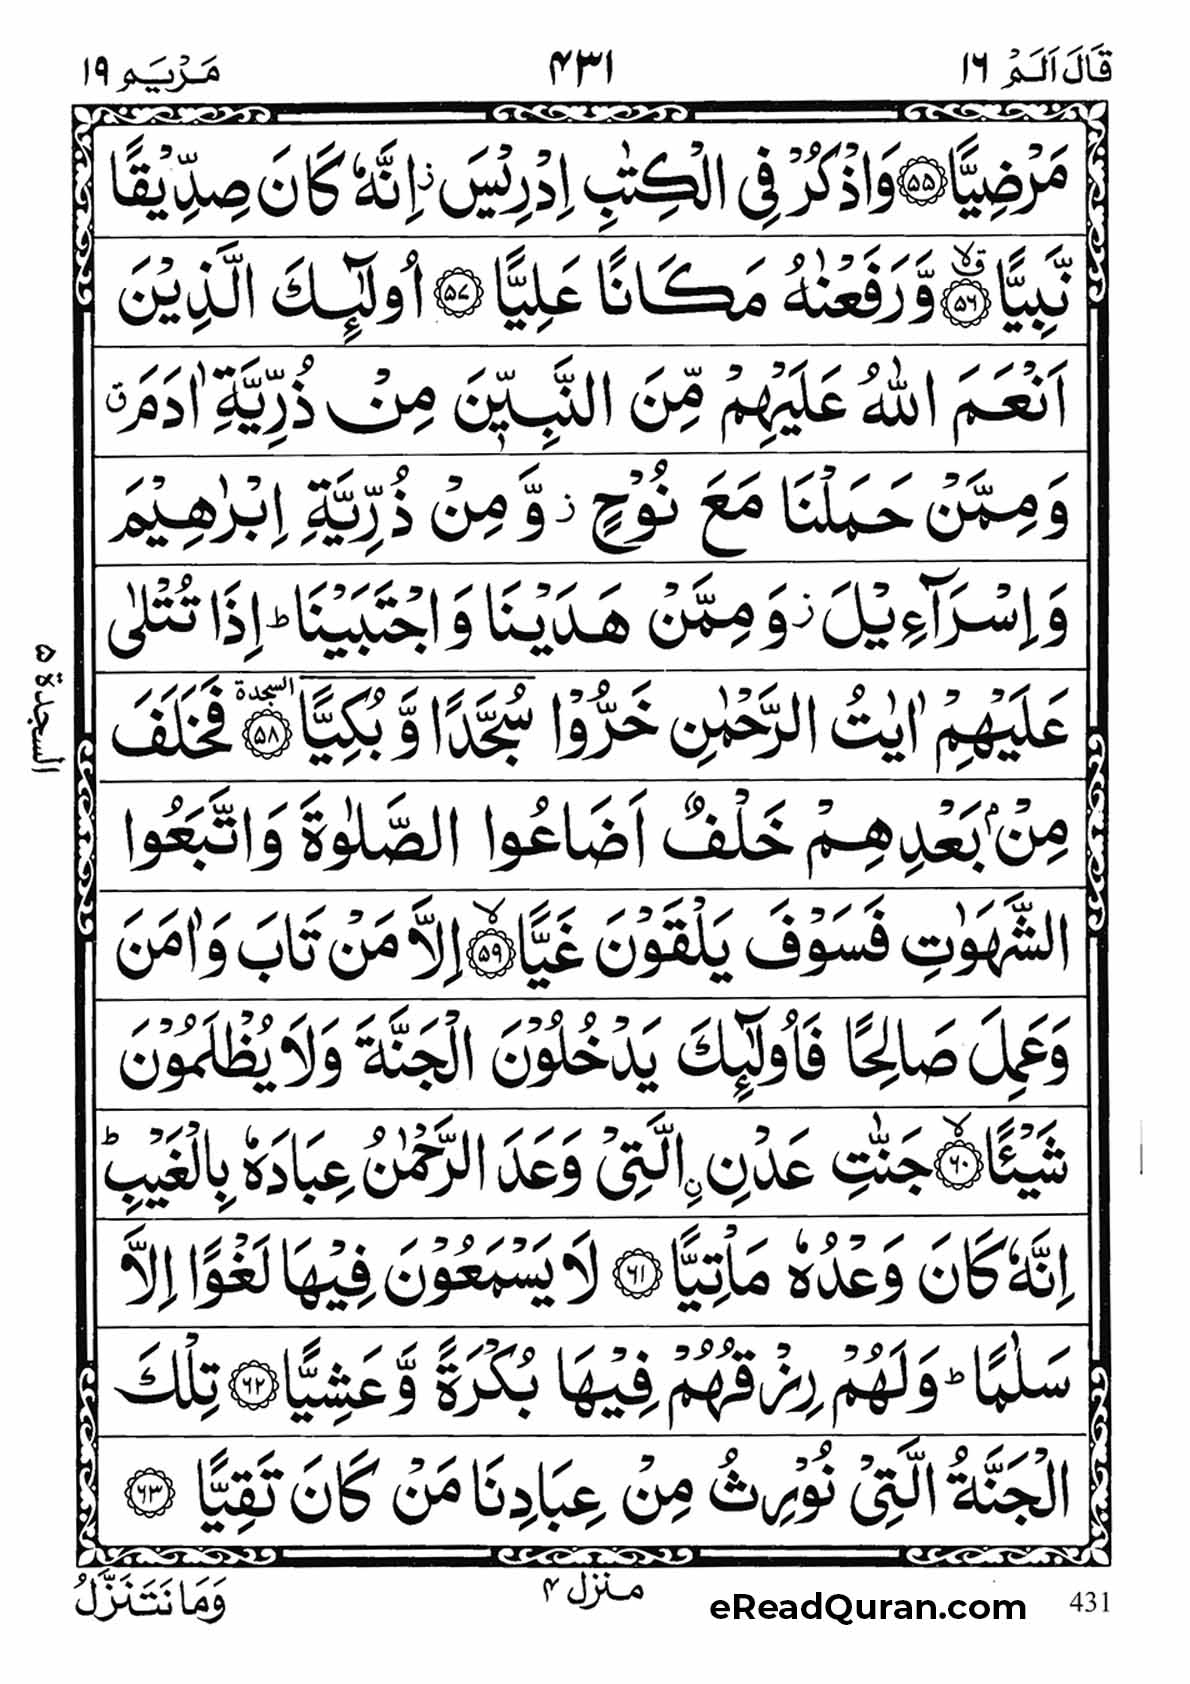 قَالَ اَلَمْ ١٦
٤٣١
مَرْيَم ١٩
مَرْضِيًّا ﴿۵۵﴾ وَاذْكُرْ فِي الْكِتٰبِ اِدْرِيْسَ ز اِنَّهٗ كَانَ صِدِّيْقًا
نَّبِيًّا ﴿۵۶﴾ ق لا وَّرَفَعْنٰهُ مَكَانًا عَلِيًّا ﴿۵۷﴾ اُولٰٓئِكَ الَّذِيْنَ
اَنْعَمَ اللّٰهُ عَلَيْهِمْ مِّنَ النَّبِيّٖنَ مِنْ ذُرِّيَّةِ اٰدَمَ ق
وَمِمَّنْ حَمَلْنَا مَعَ نُوْحٍ ز وَّمِنْ ذُرِّيَّةِ اِبْرٰهِيْمَ
وَاِسْرَآءِيْلَ ز وَمِمَّنْ هَدَيْنَا وَاجْتَبَيْنَا ط اِذَا تُتْلٰى
عَلَيْهِمْ اٰيٰتُ الرَّحْمٰنِ خَرُّوْا سُجَّدًا وَّبُكِيًّا ﴿۵۸﴾ السجدة فَخَلَفَ
مِنْۢ بَعْدِهِمْ خَلْفٌ اَضَاعُوا الصَّلٰوةَ وَاتَّبَعُوا
الشَّهَوٰتِ فَسَوْفَ يَلْقَوْنَ غَيًّا ﴿۵۹﴾ لا اِلَّا مَنْ تَابَ وَاٰمَنَ
وَعَمِلَ صَالِحًا فَاُولٰٓئِكَ يَدْخُلُوْنَ الْجَنَّةَ وَلَا يُظْلَمُوْنَ
شَيْـًٔا ﴿۶۰﴾ لا جَنّٰتِ عَدْنِ ِۨالَّتِيْ وَعَدَ الرَّحْمٰنُ عِبَادَهٗ بِالْغَيْبِ ط
اِنَّهٗ كَانَ وَعْدُهٗ مَاْتِيًّا ﴿۶۱﴾ لَا يَسْمَعُوْنَ فِيْهَا لَغْوًا اِلَّا
سَلٰمًا ط وَلَهُمْ رِزْقُهُمْ فِيْهَا بُكْرَةً وَّعَشِيًّا ﴿۶۲﴾ تِلْكَ
الْجَنَّةُ الَّتِيْ نُوْرِثُ مِنْ عِبَادِنَا مَنْ كَانَ تَقِيًّا ﴿۶۳﴾
السجدة ۵
وَمَا نَتَنَزَّلُ
منزل ۴
eReadQuran.com
431